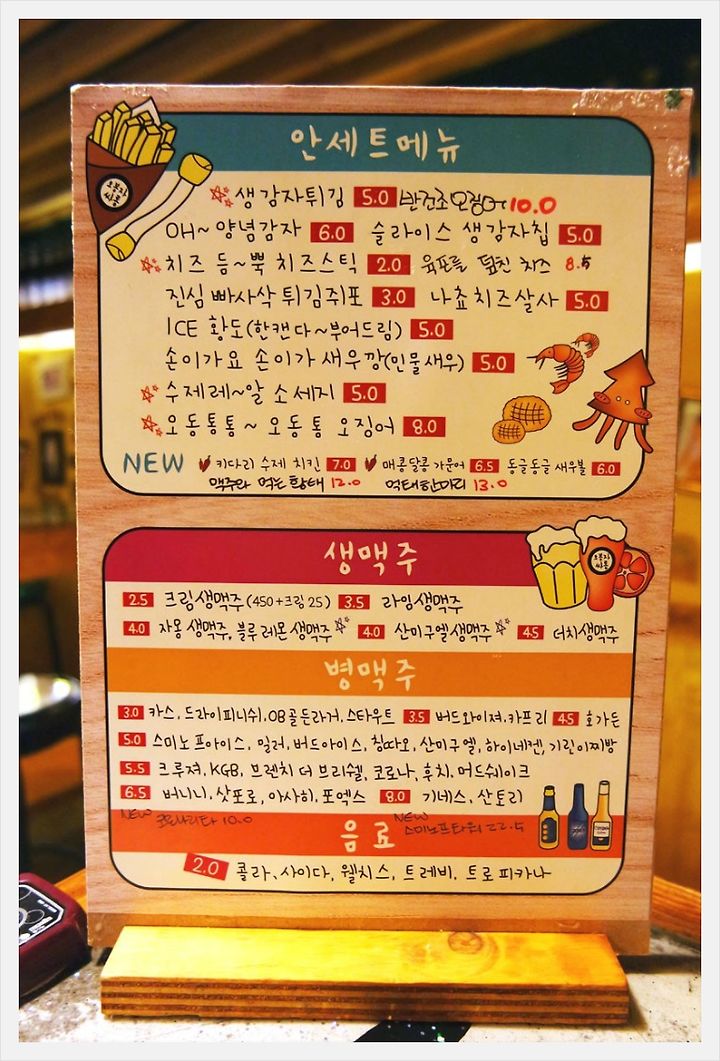 안세트메뉴
생감자튀김 5.0 반건조오징어 10.0
OH~ 양념감자 6.0 슬라이스 생감자칩 5.0
치즈 듬~뿍 치즈스틱 2.0 육포를 덮친 치즈 8.5
진심 빠사삭 튀김쥐포 3.0 나쵸치즈살사 5.0
ICE 황도(한캔다~부어드림) 5.0
손이가요 손이가 새우깡(민물새우) 5.0
수제레~알 소세지 5.0
오동통통~ 오동통 오징어 8.0
NEW 키다리 수제 치킨 7.0 매콩달콩 가문어 6.5 동글동글 새우볼 6.0
맥주와 먹는 황태 12.0 먹태한마리 13.0
생맥주
2.5 크림생맥주(450+크림25) 3.5 라임생맥주
4.0 자몽 생맥주, 블루레몬생맥주 4.0 산미구엘생맥주 4.5 더치생맥주
병맥주
3.0 카스, 드라이피니쉬, OB골든라거, 스타우트 3.5 버드와이져, 카프리 4.5 호가든
5.0 스미노프아이스, 밀러, 버드아이스, 칭따오, 산미구엘, 하이네켄, 기린이찌방
5.5 크루져, KGB, 브렌치 더 브리쉘, 코로나, 후치, 머드쉐이크
6.5 버니니, 삿포로, 아사히, 포엑스 8.0 기네스, 산토리
NEW 코로나리타 10.0 NEW 스미노프타워 22.5
음료
2.0 콜라, 사이다, 웰치스, 트레비, 트로피카나